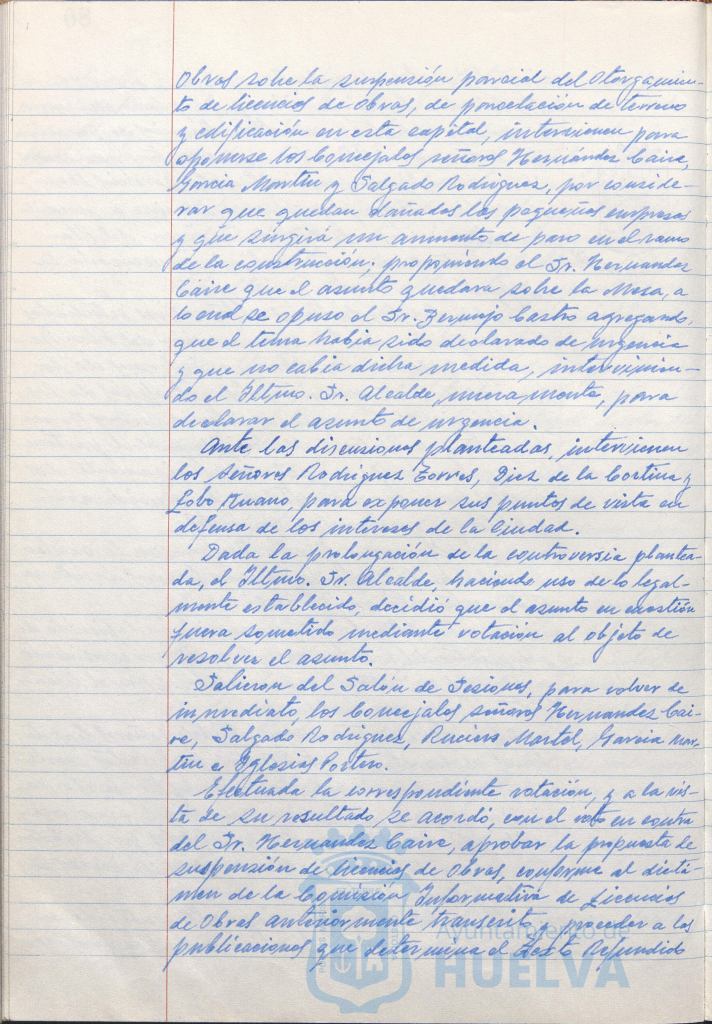 Obras sobre la suspensión parcial del Otorgamien-
to de licencias de Obras, de parcelación de terreno
y edificación en esta capital, intervienen para
oponerse los Concejales señores Hernández Caire,
García Martín y Salgado Rodríguez, por conside-
rar que quedan dañadas las pequeñas empresas
y que surgirá un aumento de paro en el ramo
de la construcción; proponiendo el Sr. Hernandez
Caire que el asunto quedara sobre la Mesa, a
lo cual se opuso el Sr. Bermejo Castro agregando,
que el tema había sido declarado de urgencia
y que no cabia dicha medida, intervinien-
do el Iltmo. Sr. Alcalde, nuevamente, para
declarar el asunto de urgencia.
Ante las discusiones planteadas, intervienen
los Señores Rodríguez Torres, Diez de la Cortina y
Lobo Ruano, para exponer sus puntos de vista en
defensa de los intereses de la Ciudad.
Dada la prolongación de la controversia plantea-
da, el Iltmo. Sr. Alcalde, haciendo uso de lo legal-
mente establecido, decidió que el asunto en cuestión
fuera sometido mediante votación al objeto de
resolver el asunto.
Salieron del Salón de Sesiones, para volver de
inmediato, los Concejales señores Hernandez Cai-
re, Salgado Rodríguez, Ruciero Martel, García Mar-
tin e Iglesias Portero.
Efectuada la correspondiente votación, y a la vis-
ta de su resultado se acordó, con el voto en contra
del Sr. Hernandez Caire, aprobar la propuesta de
suspensión de licencias de Obras, conforme al dictá-
men de la Comisión Informativa de Licencias
de Obras anteriormente transcrito y proceder a las
publicaciones que determina el Texto Refundido
Ayuntamiento de
HUELVA